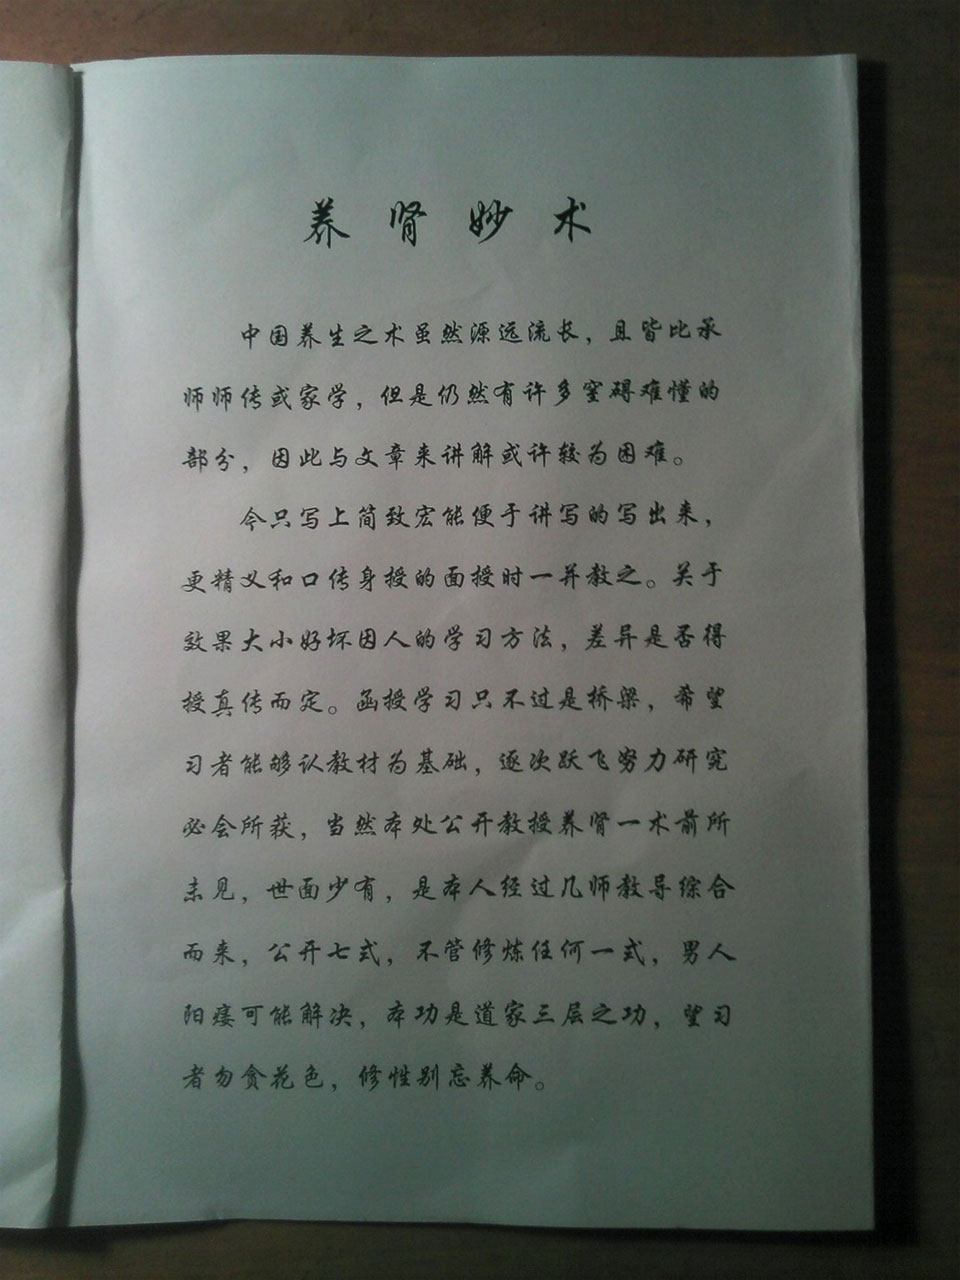 养肾妙术
中国养生之术虽然源远流长，且皆比承
师师传或家学，但是仍然有许多窒碍难懂的
部分，因此与文章来讲解或许较为困难。
今只写上简致宏能便于讲写的写出来，
更精义和口传身授的面授时一并教之。关于
效果大小好坏因人的学习方法，差异是否得
授真传而定。函授学习只不过是桥梁，希望
习者能够认教材为基础，逐次跃飞努力研究
必会所获，当然本处公开教授养肾一术前所
未见，世面少有，是本人经过几师教导综合
而来，公开七式，不管修炼任何一式，男人
阳痿可能解决，本功是道家三层之功，望习
者勿贪花色，修性别忘养命。